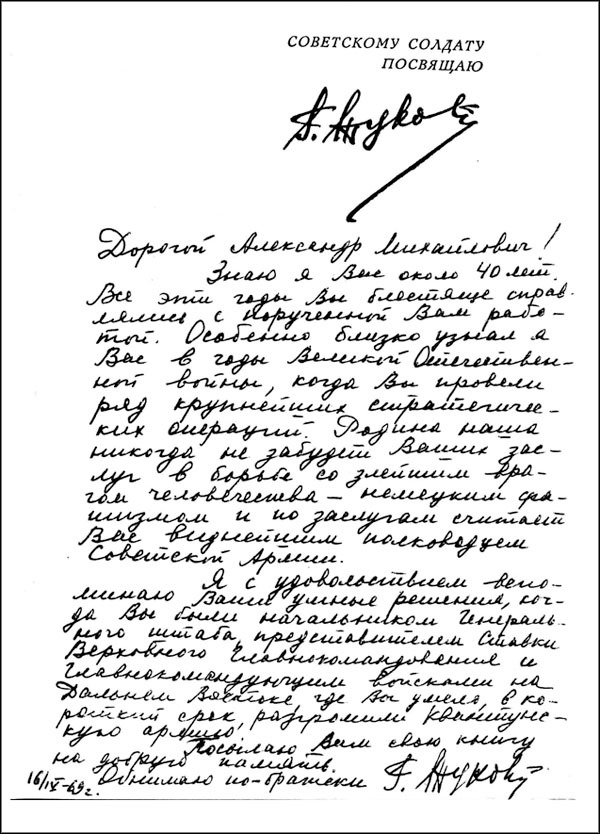 СОВЕТСКОМУ СОЛДАТУ
ПОСВЯЩАЮ
Г. Жуков
Дорогой Александр Михайлович!
Знаю я Вас около 40 лет.
Все эти годы Вы блестяще справ-
лялись с порученной Вам рабо-
той. Особенно близко узнал я
Вас в годы Великой Отечествен-
ной войны, когда Вы провели
ряд крупнейших стратегичес-
ких операций. Родина наша
никогда не забудет Ваших зас-
луг в борьбе со злейшим вра-
гом человечества – немецким фа-
шизмом и по заслугам считает
Вас виднейшим полководцем
Советской Армии.
Я с удовольствием вспо-
минаю Ваши умные решения, ког-
да Вы были начальником Генераль-
ного штаба, представителем Ставки
Верховного Главнокомандования и
Главнокомандующим войсками на
Дальнем Востоке, где Вы умело, в ко-
роткий срок, разгромили Квантунс-
кую армию.
Посылаю Вам свою книгу
на добрую память.
Обнимаю по-братски Г. Жуков
16/IV-69г.